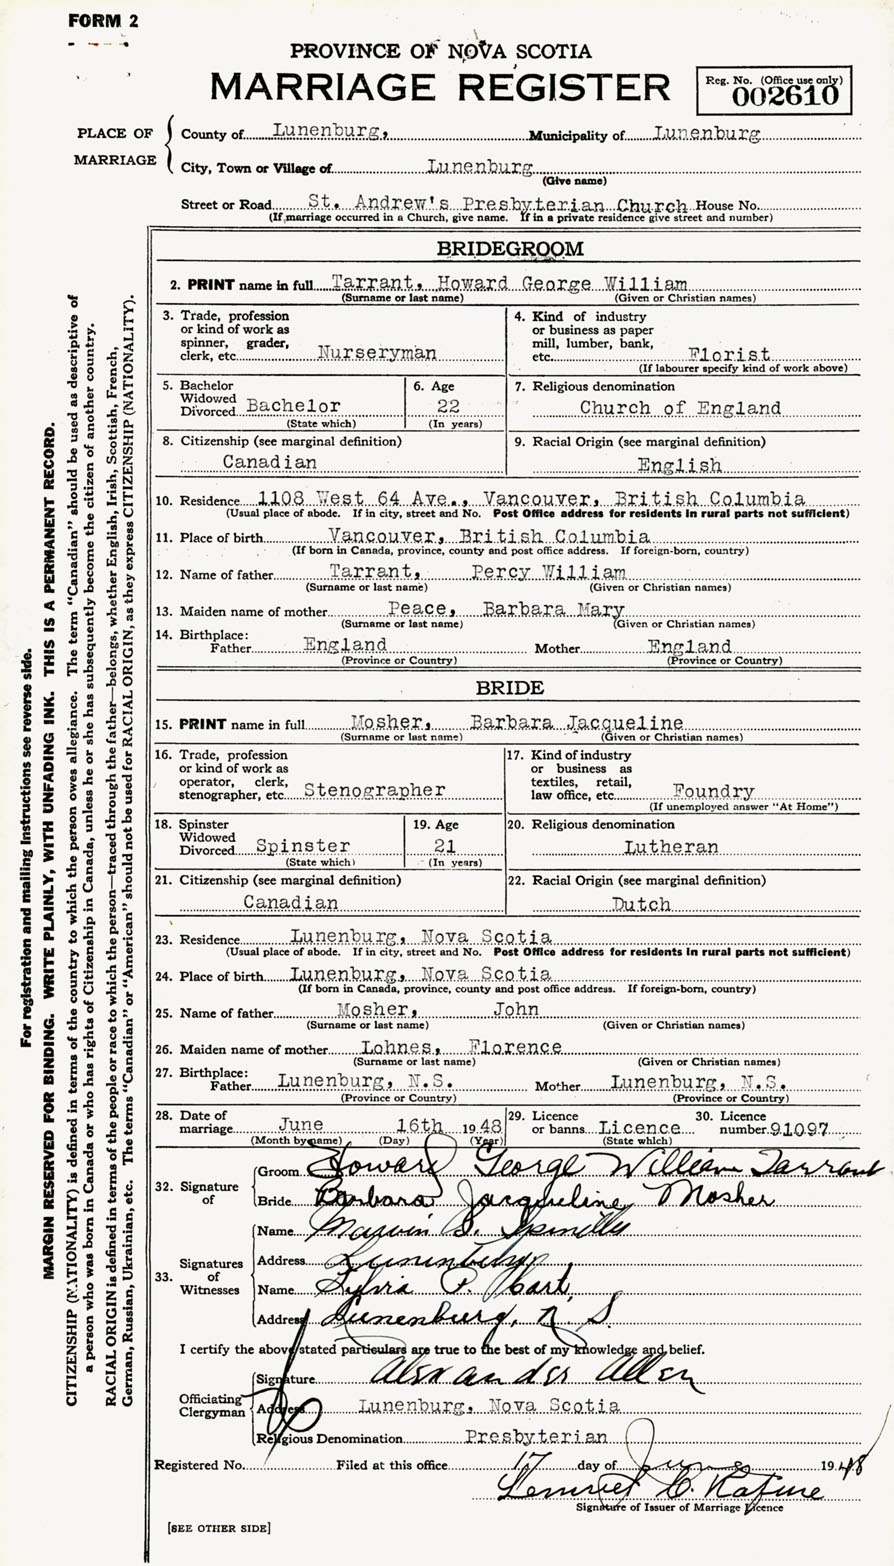 FORM 2
PROVINCE OF NOVA SCOTIA
MARRIAGE REGISTER
Reg. No. (Office use only)
002610
PLACE OF MARRIAGE
County of Lunenburg, Municipality of Lunenburg
City, Town or Village of Lunenburg
(Give name)
Street or Road St. Andrew's Presbyterian Church House No.
(If marriage occurred in a Church, give name. If in a private residence give street and number)
BRIDEGROOM
2. PRINT name in full Tarrant, Howard George William
(Surname or last name) (Given or Christian names)
3. Trade, profession
or kind of work as
spinner, grader,
clerk, etc. Nurseryman
4. Kind of industry
or business as paper
mill, lumber, bank,
etc. Florist
(If labourer specify kind of work above)
5. Bachelor
Widowed
Divorced Bachelor
(State which)
6. Age
22
(In years)
7. Religious denomination
Church of England
8. Citizenship (see marginal definition)
Canadian
9. Racial Origin (see marginal definition)
English
10. Residence 1108 West 64 Ave., Vancouver, British Columbia
(Usual place of abode. If in city, street and No. Post Office address for residents in rural parts not sufficient)
11. Place of birth Vancouver, British Columbia
(If born in Canada, province, county and post office address. If foreign-born, country)
12. Name of father Tarrant, Percy William
(Surname or last name) (Given or Christian names)
13. Maiden name of mother Peace, Barbara Mary
(Surname or last name) (Given or Christian names)
14. Birthplace:
Father England Mother England
(Province or Country) (Province or Country)
BRIDE
15. PRINT name in full Mosher, Barbara Jacqueline
(Surname or last name) (Given or Christian names)
16. Trade, profession
or kind of work as
operator, clerk,
stenographer, etc. Stenographer
17. Kind of industry
or business as
textiles, retail,
law office, etc. Foundry
(If unemployed answer "At Home")
18. Spinster
Widowed
Divorced Spinster
(State which)
19. Age
21
(In years)
20. Religious denomination
Lutheran
21. Citizenship (see marginal definition)
Canadian
22. Racial Origin (see marginal definition)
Dutch
23. Residence Lunenburg, Nova Scotia
(Usual place of abode. If in city, street and No. Post Office address for residents in rural parts not sufficient)
24. Place of birth Lunenburg, Nova Scotia
(If born in Canada, province, county and post office address. If foreign-born, country)
25. Name of father Mosher, John
(Surname or last name) (Given or Christian names)
26. Maiden name of mother Lohnes, Florence
(Surname or last name) (Given or Christian names)
27. Birthplace:
Father Lunenburg, N.S. Mother Lunenburg, N.S.
(Province or Country) (Province or Country)
28. Date of
marriage June 16th 1948
(Month by name) (Day) (Year)
29. Licence
or banns Licence
(State which)
30. Licence
number 91097
32. Signature of
Groom Howard George William Tarrant
Bride Barbara Jacqueline Mosher
33. Signatures of Witnesses
Name
Address Lunenburg
Name Sylvia P. Hart
Address Lunenburg, N. S.
I certify the above stated particulars are true to the best of my knowledge and belief.
Officiating Clergyman
Signature Alexander Allen
Address Lunenburg, Nova Scotia
Religious Denomination Presbyterian
Registered No. Filed at this office 17 day of June 1948
Signature of Issuer of Marriage Licence
[SEE OTHER SIDE]
For registration and mailing instructions see reverse side.
MARGIN RESERVED FOR BINDING. WRITE PLAINLY, WITH UNFADING INK. THIS IS A PERMANENT RECORD.
CITIZENSHIP (NATIONALITY) is defined in terms of the country to which the person owes allegiance. The term "Canadian" should be used as descriptive of
a person who was born in Canada or who has rights of Citizenship in Canada, unless he or she has subsequently become the citizen of another country.
RACIAL ORIGIN is defined in terms of the people or race to which the person—traced through the father—belongs, whether English, Irish, Scottish, French,
German, Russian, Ukrainian, etc. The terms "Canadian" or "American" should not be used for RACIAL ORIGIN, as they express CITIZENSHIP (NATIONALITY).